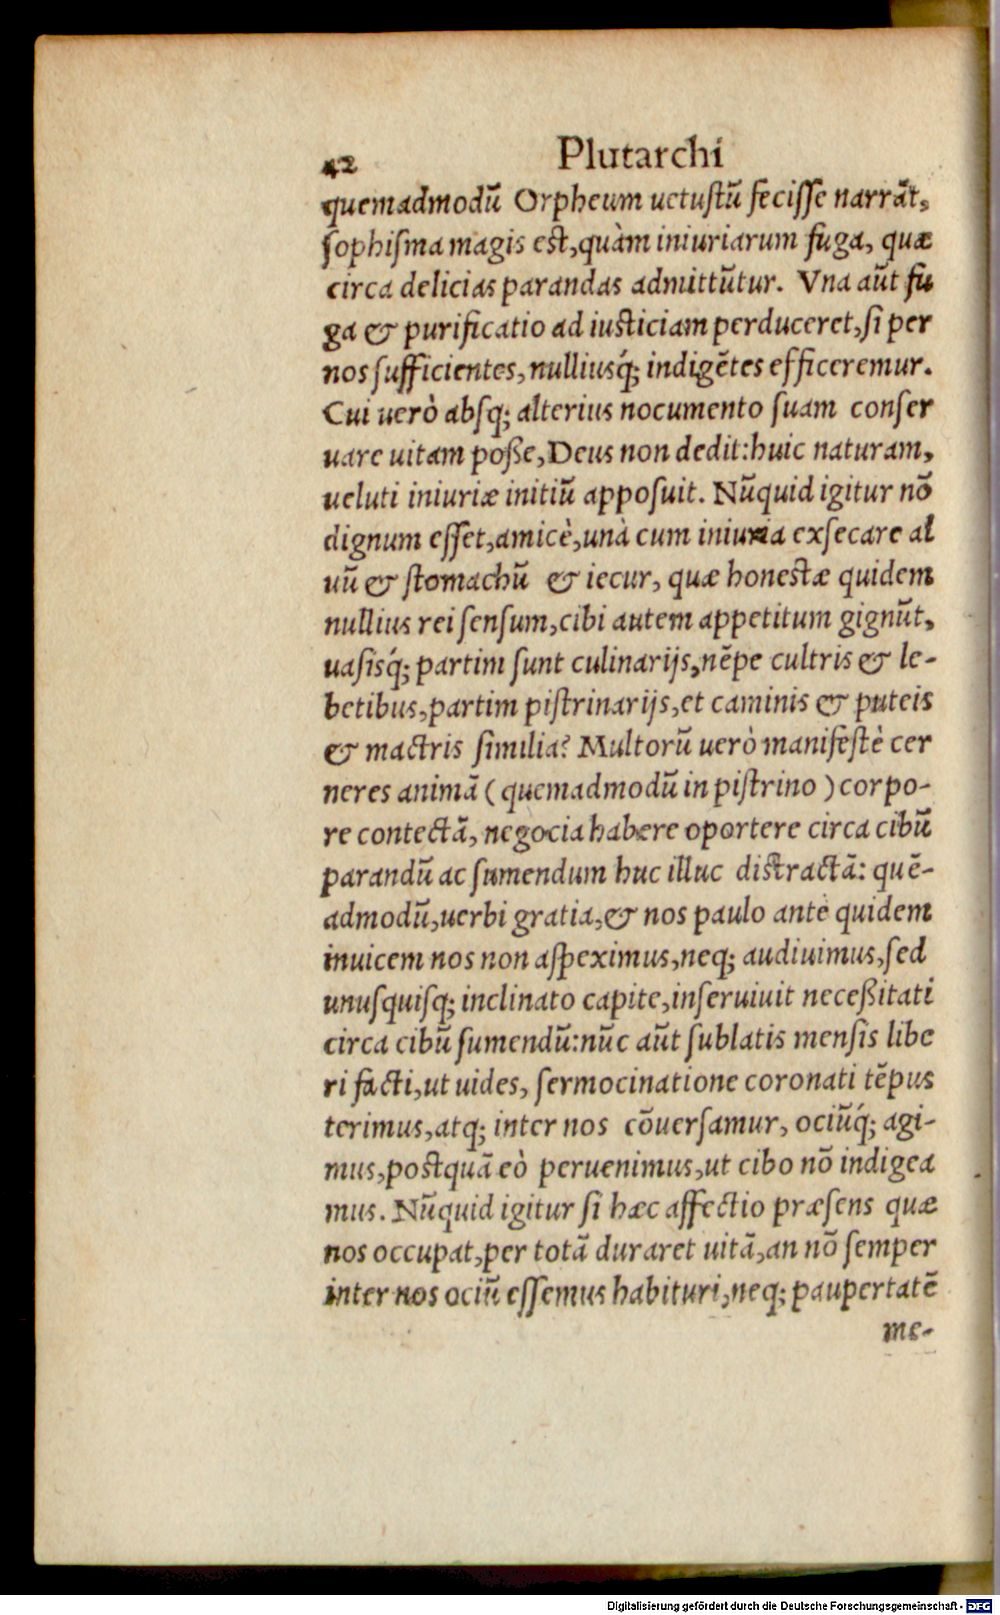 42 Plutarchi
quemadmodū Orpheum uetustū fecisse narrāt,
sophisma magis est, quàm iniuriarum fuga, quæ
circa delicias parandas admittūtur. Vna aūt fu
ga & purificatio ad iusticiam perduceret, si per
nos sufficientes, nulliusq́; indigētes efficeremur.
Cui uerò absq; alterius nocumento suam conser
uare uitam poße, Deus non dedit: huic naturam,
ueluti iniuriæ initiū apposuit. Nūquid igitur nō
dignum esset, amicè, unà cum iniuria exsecare al
uū & stomachū & iecur, quæ honestæ quidem
nullius rei sensum, cibi autem appetitum gignūt,
uasisq́; partim sunt culinarijs, nēpe cultris & le-
betibus, partim pistrinarijs, et caminis & puteis
& mactris similia? Multorū uerò manifestè cer
neres animā (quemadmodū in pistrino) corpo-
re contectā, negocia habere oportere circa cibū
parandū ac sumendum huc illuc distractā: quē-
admodū, uerbi gratia, & nos paulo antè quidem
inuicem nos non aspeximus, neq; audiuimus, sed
unusquisq; inclinato capite, inseruiuit neceßitati
circa cibū sumendū: nūc aūt sublatis mensis libe
ri facti, ut uides, sermocinatione coronati tēpus
terimus, atq; inter nos cōuersamur, ociūq́; agi-
mus, postquā eò peruenimus, ut cibo nō indigea
mus. Nūquid igitur si hæc affectio præsens quæ
nos occupat, per totā duraret uitā, an nō semper
inter nos ociū essemus habituri, neq; paupertatē
me-
Digitalisierung gefördert durch die Deutsche Forschungsgemeinschaft - DFG